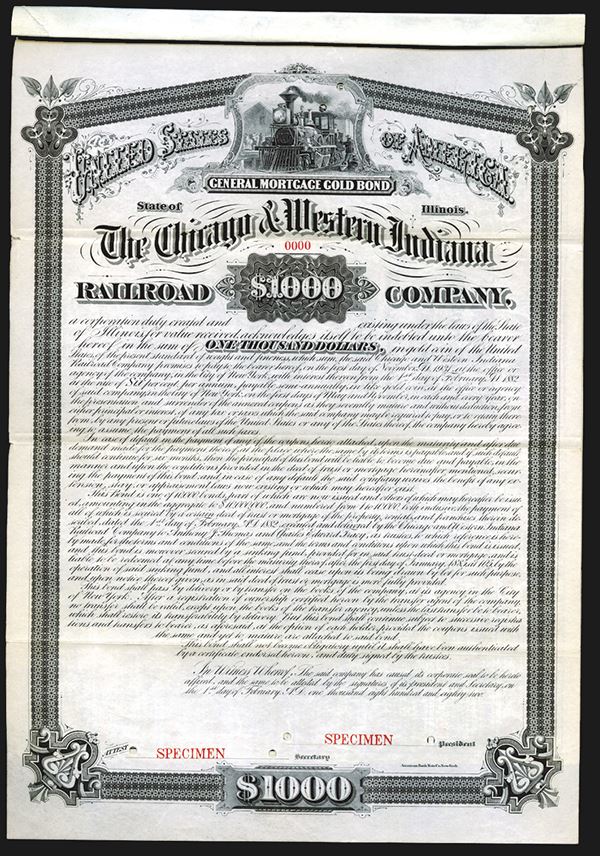 UNITED STATES OF AMERICA.
GENERAL MORTGAGE GOLD BOND
State of Illinois.
The Chicago & Western Indiana
0000
RAILROAD $1000 COMPANY.
a corporation duly created and existing under the laws of the State
of Illinois, for value received, acknowledges itself to be indebted unto the bearer
hereof in the sum of ONE THOUSAND DOLLARS, in gold coin of the United
States, of the present standard of weight and fineness, which sum, the said Chicago and Western Indiana
Railroad Company promises to pay to the bearer hereof, on the first day of November A.D. at the office or
agency of the company, in the City of New York, with interest thereon from the 1st day of February A.D. 1882
at the rate of Six per cent. per annum, payable semi-annually, in like gold coin, at the office or agency
of said company, in the City of New York, on the first days of May and November, in each and every year, on
the presentation and surrender of the annexed coupons as they severally mature, and without deduction from
either principal or interest, of any tax or taxes which the said company may be required to pay, or to retain there
from, by any present or future laws of the United States or any of the States thereof, the company hereby agree
ing to assume the payment of all such taxes.
In case of default in the payment of any of the coupons hereto attached, upon the maturity and after due
demand made for the payment thereof, at the place where the same by its terms is payable, and if such default
should continue for six months, then the principal of this bond will be held to become due and payable, in the
manner and upon the conditions provided in the deed of trust or mortgage hereinafter mentioned, secur
ing the payment of this bond, and in case of any default the said company waives the benefit of any ex
tension, stay, or appraisement laws now existing or which may hereafter exist.
This Bond is one of 10,000 bonds, part of which are now issued and others of which may hereafter be issu
ed, amounting in the aggregate to $10,000,000, and numbered from 1 to 10,000 both inclusive, the payment of
all of which is secured by a certain deed of trust or mortgage of the property, rentals and franchises therein de
scribed, dated the 1st day of February, A.D. 1882, executed and delivered by the Chicago and Western Indiana
Railroad Company to Anthony J. Thomas and Charles Edward Tracy, as trustees, to which reference is here
by made, for the terms and conditions of the same, and the terms and conditions upon which this bond is issued,
and this bond is moreover secured by a sinking fund, provided for in said trust deed or mortgage, and is
liable to be redeemed at any time before the maturity thereof, after the first day of January, at by the
operation of said sinking fund, and all interest shall cease upon its being drawn by lot for such purpose,
and upon notice thereof given, as in said deed of trust or mortgage is more fully provided.
This bond shall pass by delivery or by transfer on the books of the company, at its agency in the City
of New York. After a registration of ownership certified hereon by the transfer agent of the company,
no transfer shall be valid, except upon the books of the transfer agency, unless the last transfer be to bearer,
which shall restore its transferability by delivery. But this bond shall continue subject to successive registra
tions and transfers to bearer, as aforesaid, at the option of each holder, provided the coupons issued with
the same and yet to mature, are attached to said bond.
This bond shall not become obligatory until it shall have been authenticated
by a certificate endorsed hereon, and duly signed by the trustees.
In Witness Whereof, The said company has caused its corporate seal to be hereto
affixed, and the same to be attested by the signatures of its President and Secretary, on
the 1st day of February, A.D. one thousand eight hundred and eighty two.
ATTEST
SPECIMEN
Secretary
SPECIMEN
President
American Bank Note Co. New York.
$1000